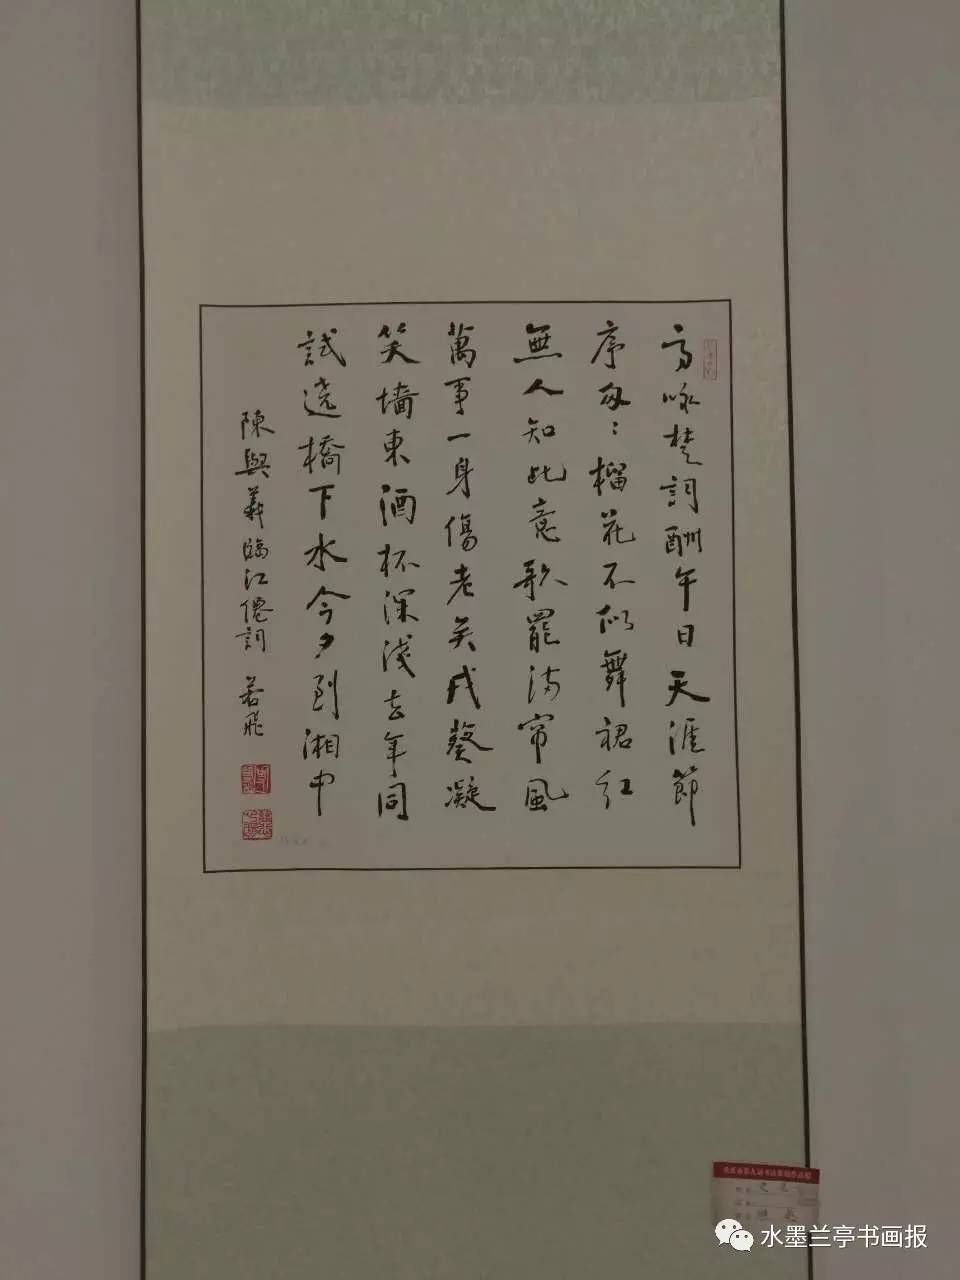 高咏楚词酬午日天涯節
序匆々榴花不似舞裙红
無人知此意歌罷满帘風
萬事一身傷老矣戎葵凝
笑墙東酒杯深淺去年同
試遶橋下水今夕到湘中
陳與義臨江僊詞 若飛
水墨兰亭书画报